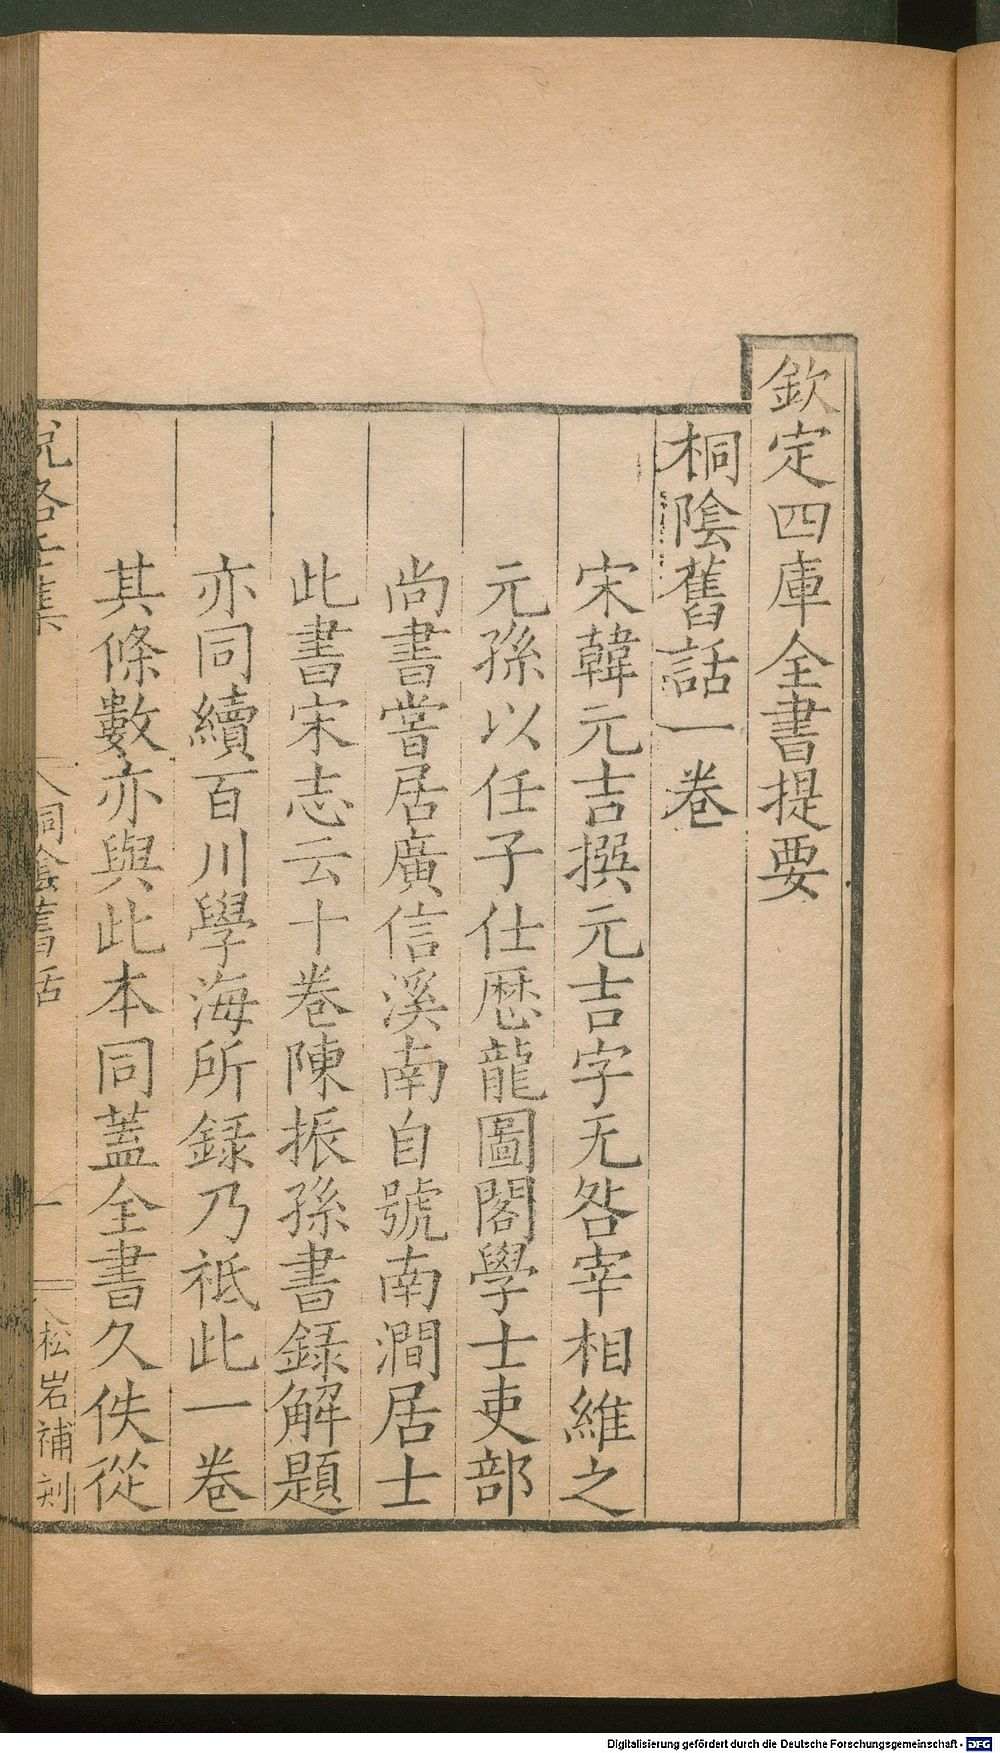 欽定四庫全書提要
桐陰舊話一卷
宋韓元吉撰元吉字无咎宰相維之
元孫以任子仕歴龍圖閣學士吏部
尚書嘗居廣信溪南自號南澗居士
此書宋志云十卷陳振孫書録解題
亦同續百川學海所録乃祗此一卷
其條數亦與此本同蓋全書久佚從
桐陰舊話
一
松岩補刻
Digitalisierung gefördert durch die Deutsche Forschungsgemeinschaft - DFG